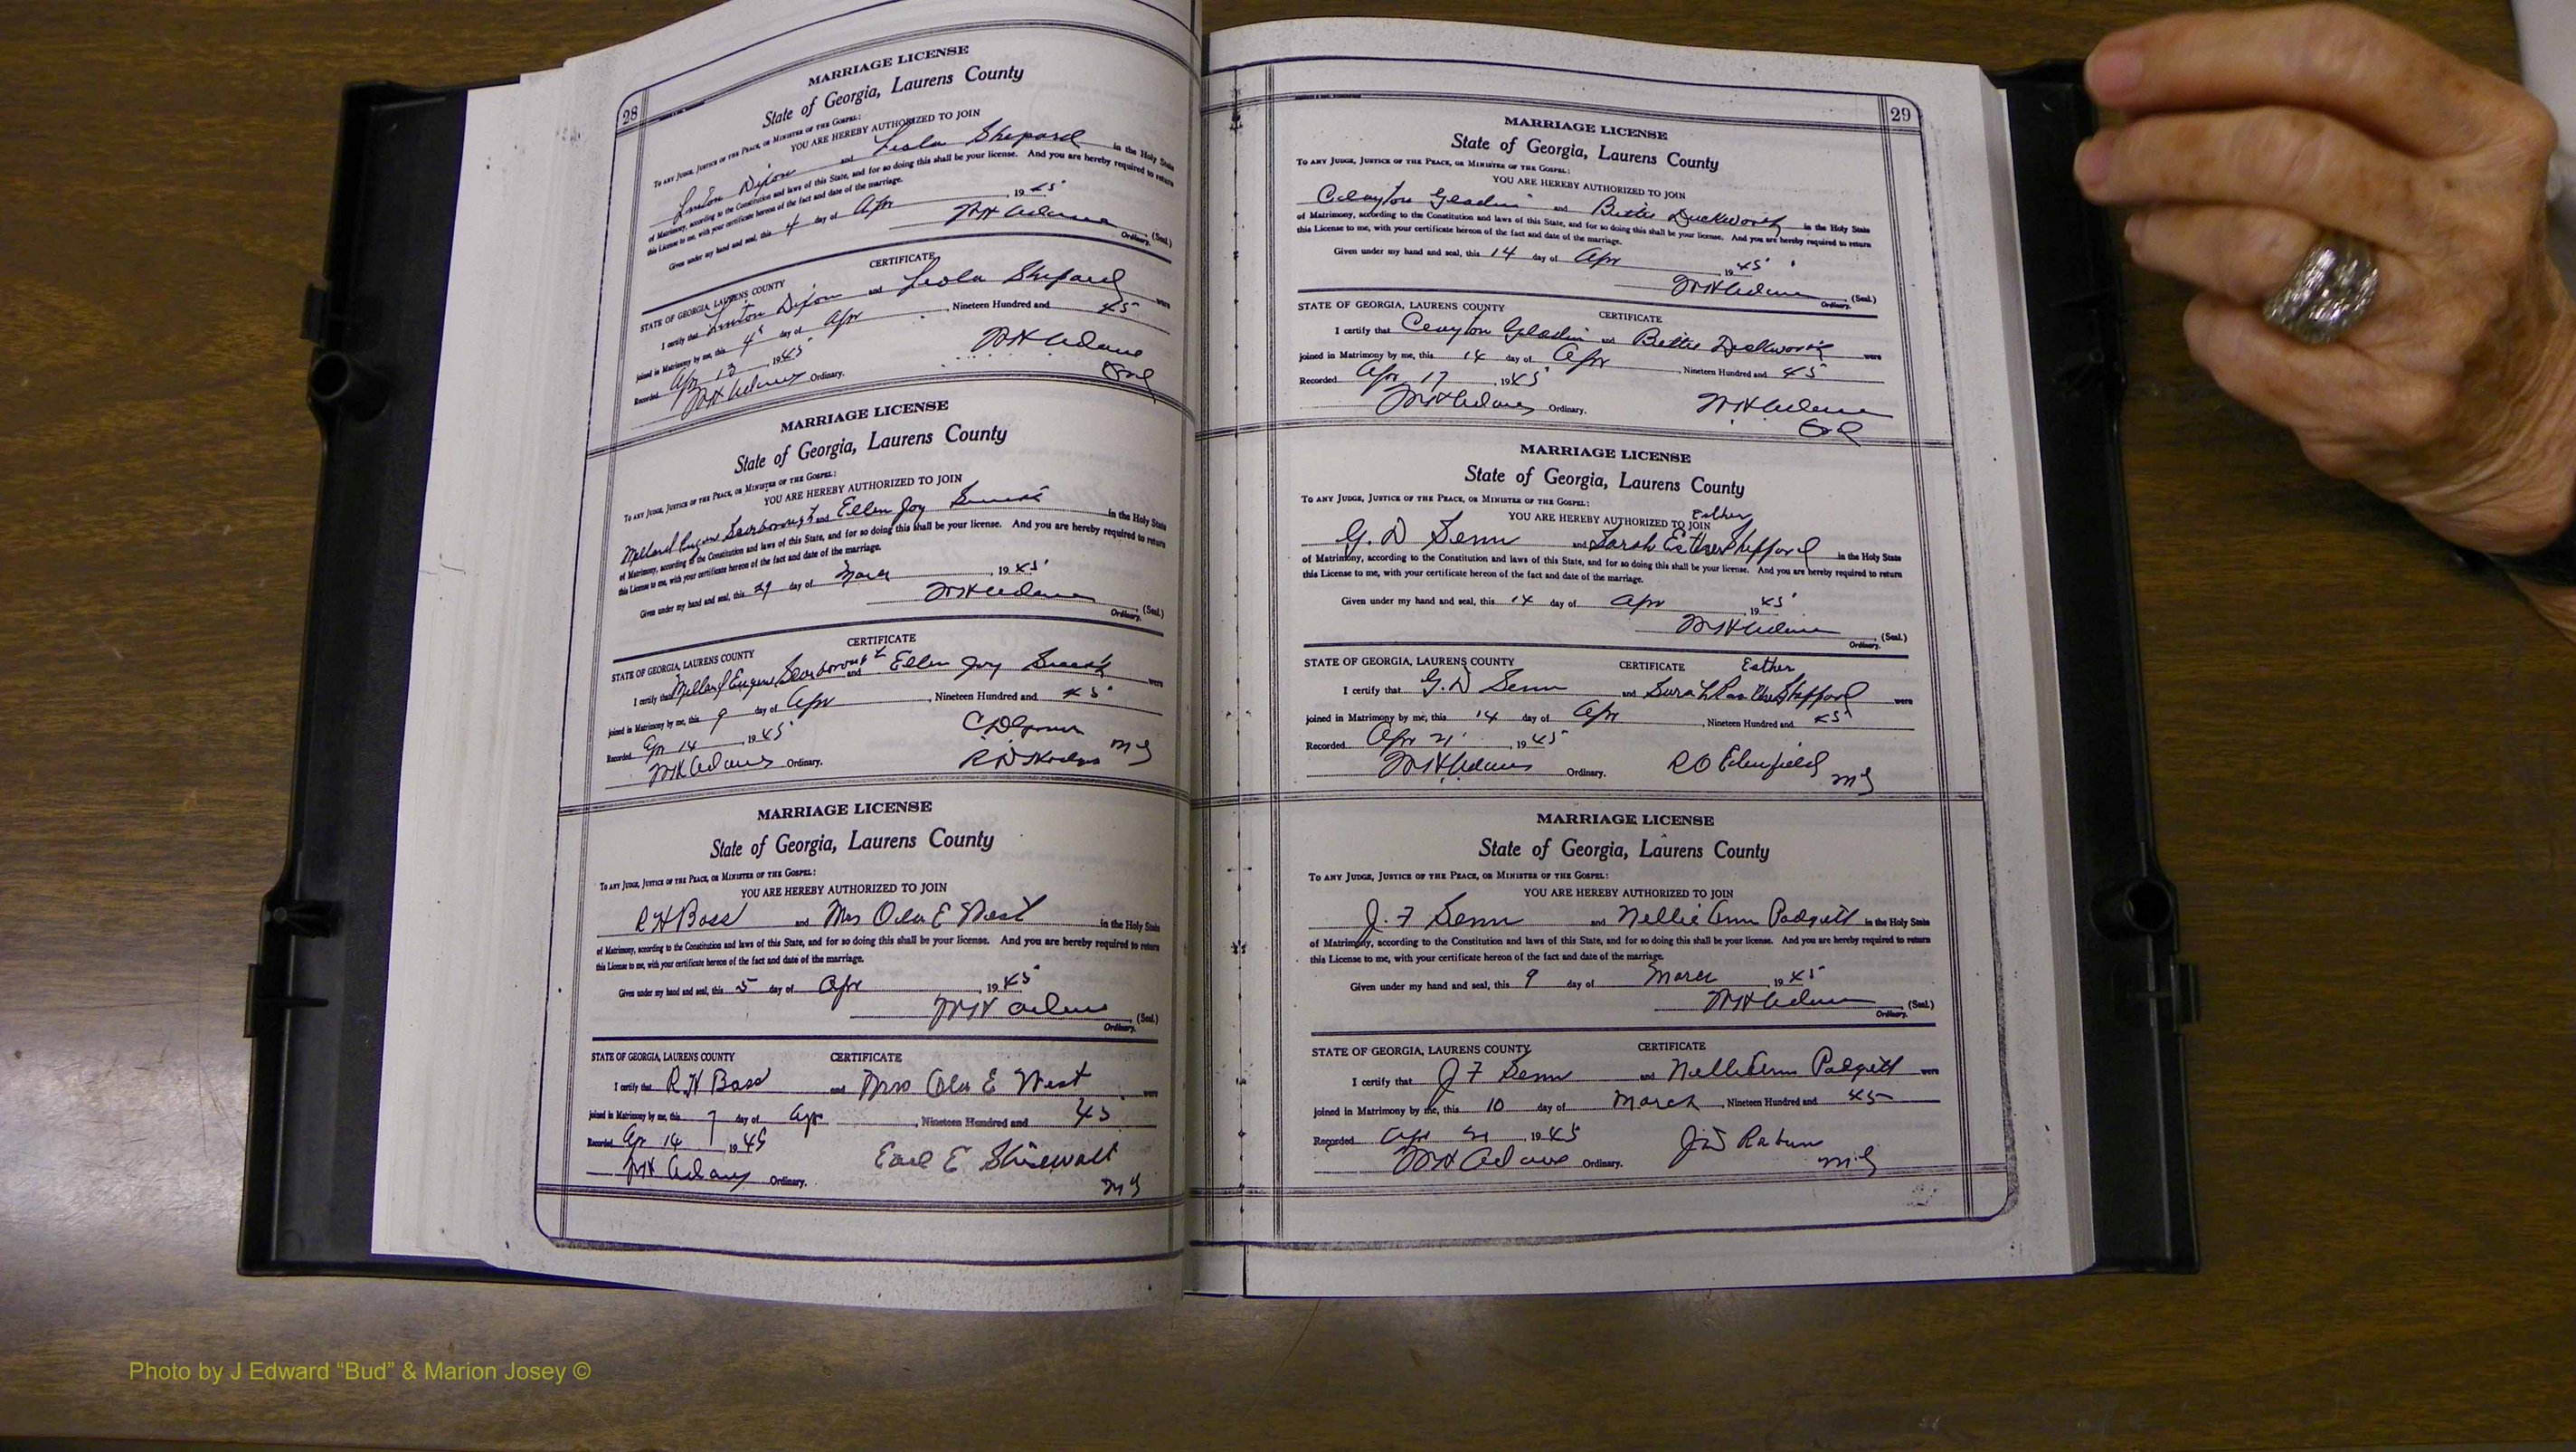 28
MARRIAGE LICENSE
State of Georgia, Laurens County
TO ANY JUDGE, JUSTICE OF THE PEACE, OR MINISTER OF THE GOSPEL:
YOU ARE HEREBY AUTHORIZED TO JOIN
Linton Dixon and Leola Shepard in the Holy State
of Matrimony, according to the Constitution and laws of this State, and for so doing this shall be your license. And you are hereby required to return
this License to me, with your certificate hereon of the fact and date of the marriage.
Given under my hand and seal, this 4 day of Apr, 1945
WH Adams (Seal.)
Ordinary.
CERTIFICATE
STATE OF GEORGIA, LAURENS COUNTY
I certify that Linton Dixon and Leola Shepard were
joined in Matrimony by me, this 4 day of Apr, Nineteen Hundred and 45
Recorded Apr 13, 1945 WH Adams
WH Adams Ordinary. Ord
MARRIAGE LICENSE
State of Georgia, Laurens County
TO ANY JUDGE, JUSTICE OF THE PEACE, OR MINISTER OF THE GOSPEL:
YOU ARE HEREBY AUTHORIZED TO JOIN
Millard Eugene Scarborough and Ellen Joy in the Holy State
of Matrimony, according to the Constitution and laws of this State, and for so doing this shall be your license. And you are hereby required to return
this License to me, with your certificate hereon of the fact and date of the marriage.
Given under my hand and seal, this 29 day of March, 1945
WH Adams (Seal.)
Ordinary.
CERTIFICATE
STATE OF GEORGIA, LAURENS COUNTY
I certify that Millard Eugene Scarborough and Ellen Joy were
joined in Matrimony by me, this 9 day of Apr, Nineteen Hundred and 45
Recorded Apr 14, 1945
WH Adams Ordinary. MG
MARRIAGE LICENSE
State of Georgia, Laurens County
TO ANY JUDGE, JUSTICE OF THE PEACE, OR MINISTER OF THE GOSPEL:
YOU ARE HEREBY AUTHORIZED TO JOIN
R H Bass and Mrs Ola E West in the Holy State
of Matrimony, according to the Constitution and laws of this State, and for so doing this shall be your license. And you are hereby required to return
this License to me, with your certificate hereon of the fact and date of the marriage.
Given under my hand and seal, this 5 day of Apr, 1945
WH Adams (Seal.)
Ordinary.
STATE OF GEORGIA, LAURENS COUNTY CERTIFICATE
I certify that R H Bass and Mrs Ola E West were
joined in Matrimony by me, this 7 day of Apr, Nineteen Hundred and 45
Recorded Apr 14, 1945 Earl E
WH Adams Ordinary. MG
29
MARRIAGE LICENSE
State of Georgia, Laurens County
TO ANY JUDGE, JUSTICE OF THE PEACE, OR MINISTER OF THE GOSPEL:
YOU ARE HEREBY AUTHORIZED TO JOIN
Clayton Gladin and Bettie Duckworth in the Holy State
of Matrimony, according to the Constitution and laws of this State, and for so doing this shall be your license. And you are hereby required to return
this License to me, with your certificate hereon of the fact and date of the marriage.
Given under my hand and seal, this 14 day of Apr, 1945
WH Adams (Seal.)
Ordinary.
STATE OF GEORGIA, LAURENS COUNTY CERTIFICATE
I certify that Clayton Gladin and Bettie Duckworth were
joined in Matrimony by me, this 14 day of Apr, Nineteen Hundred and 45
Recorded Apr 17, 1945
WH Adams Ordinary. WH Adams
Ord
MARRIAGE LICENSE
State of Georgia, Laurens County
TO ANY JUDGE, JUSTICE OF THE PEACE, OR MINISTER OF THE GOSPEL:
YOU ARE HEREBY AUTHORIZED TO JOIN Esther
G. D Senn and Sarah Esther Shepford in the Holy State
of Matrimony, according to the Constitution and laws of this State, and for so doing this shall be your license. And you are hereby required to return
this License to me, with your certificate hereon of the fact and date of the marriage.
Given under my hand and seal, this 14 day of Apr, 1945
WH Adams (Seal.)
Ordinary.
STATE OF GEORGIA, LAURENS COUNTY CERTIFICATE Esther
I certify that G. D Senn and Sarah were
joined in Matrimony by me, this 14 day of Apr, Nineteen Hundred and 45
Recorded Apr 21, 1945
WH Adams Ordinary. R O MG
MARRIAGE LICENSE
State of Georgia, Laurens County
TO ANY JUDGE, JUSTICE OF THE PEACE, OR MINISTER OF THE GOSPEL:
YOU ARE HEREBY AUTHORIZED TO JOIN
J. F Senn and Nellie Ann Padgett in the Holy State
of Matrimony, according to the Constitution and laws of this State, and for so doing this shall be your license. And you are hereby required to return
this License to me, with your certificate hereon of the fact and date of the marriage.
Given under my hand and seal, this 9 day of March, 1945
WH Adams (Seal.)
Ordinary.
STATE OF GEORGIA, LAURENS COUNTY CERTIFICATE
I certify that J F Senn and Nellie Ann Padgett were
joined in Matrimony by me, this 10 day of March, Nineteen Hundred and 45
Recorded Apr 21, 1945 Rabun
WH Adams Ordinary. MG
Photo by J Edward “Bud” & Marion Josey ©